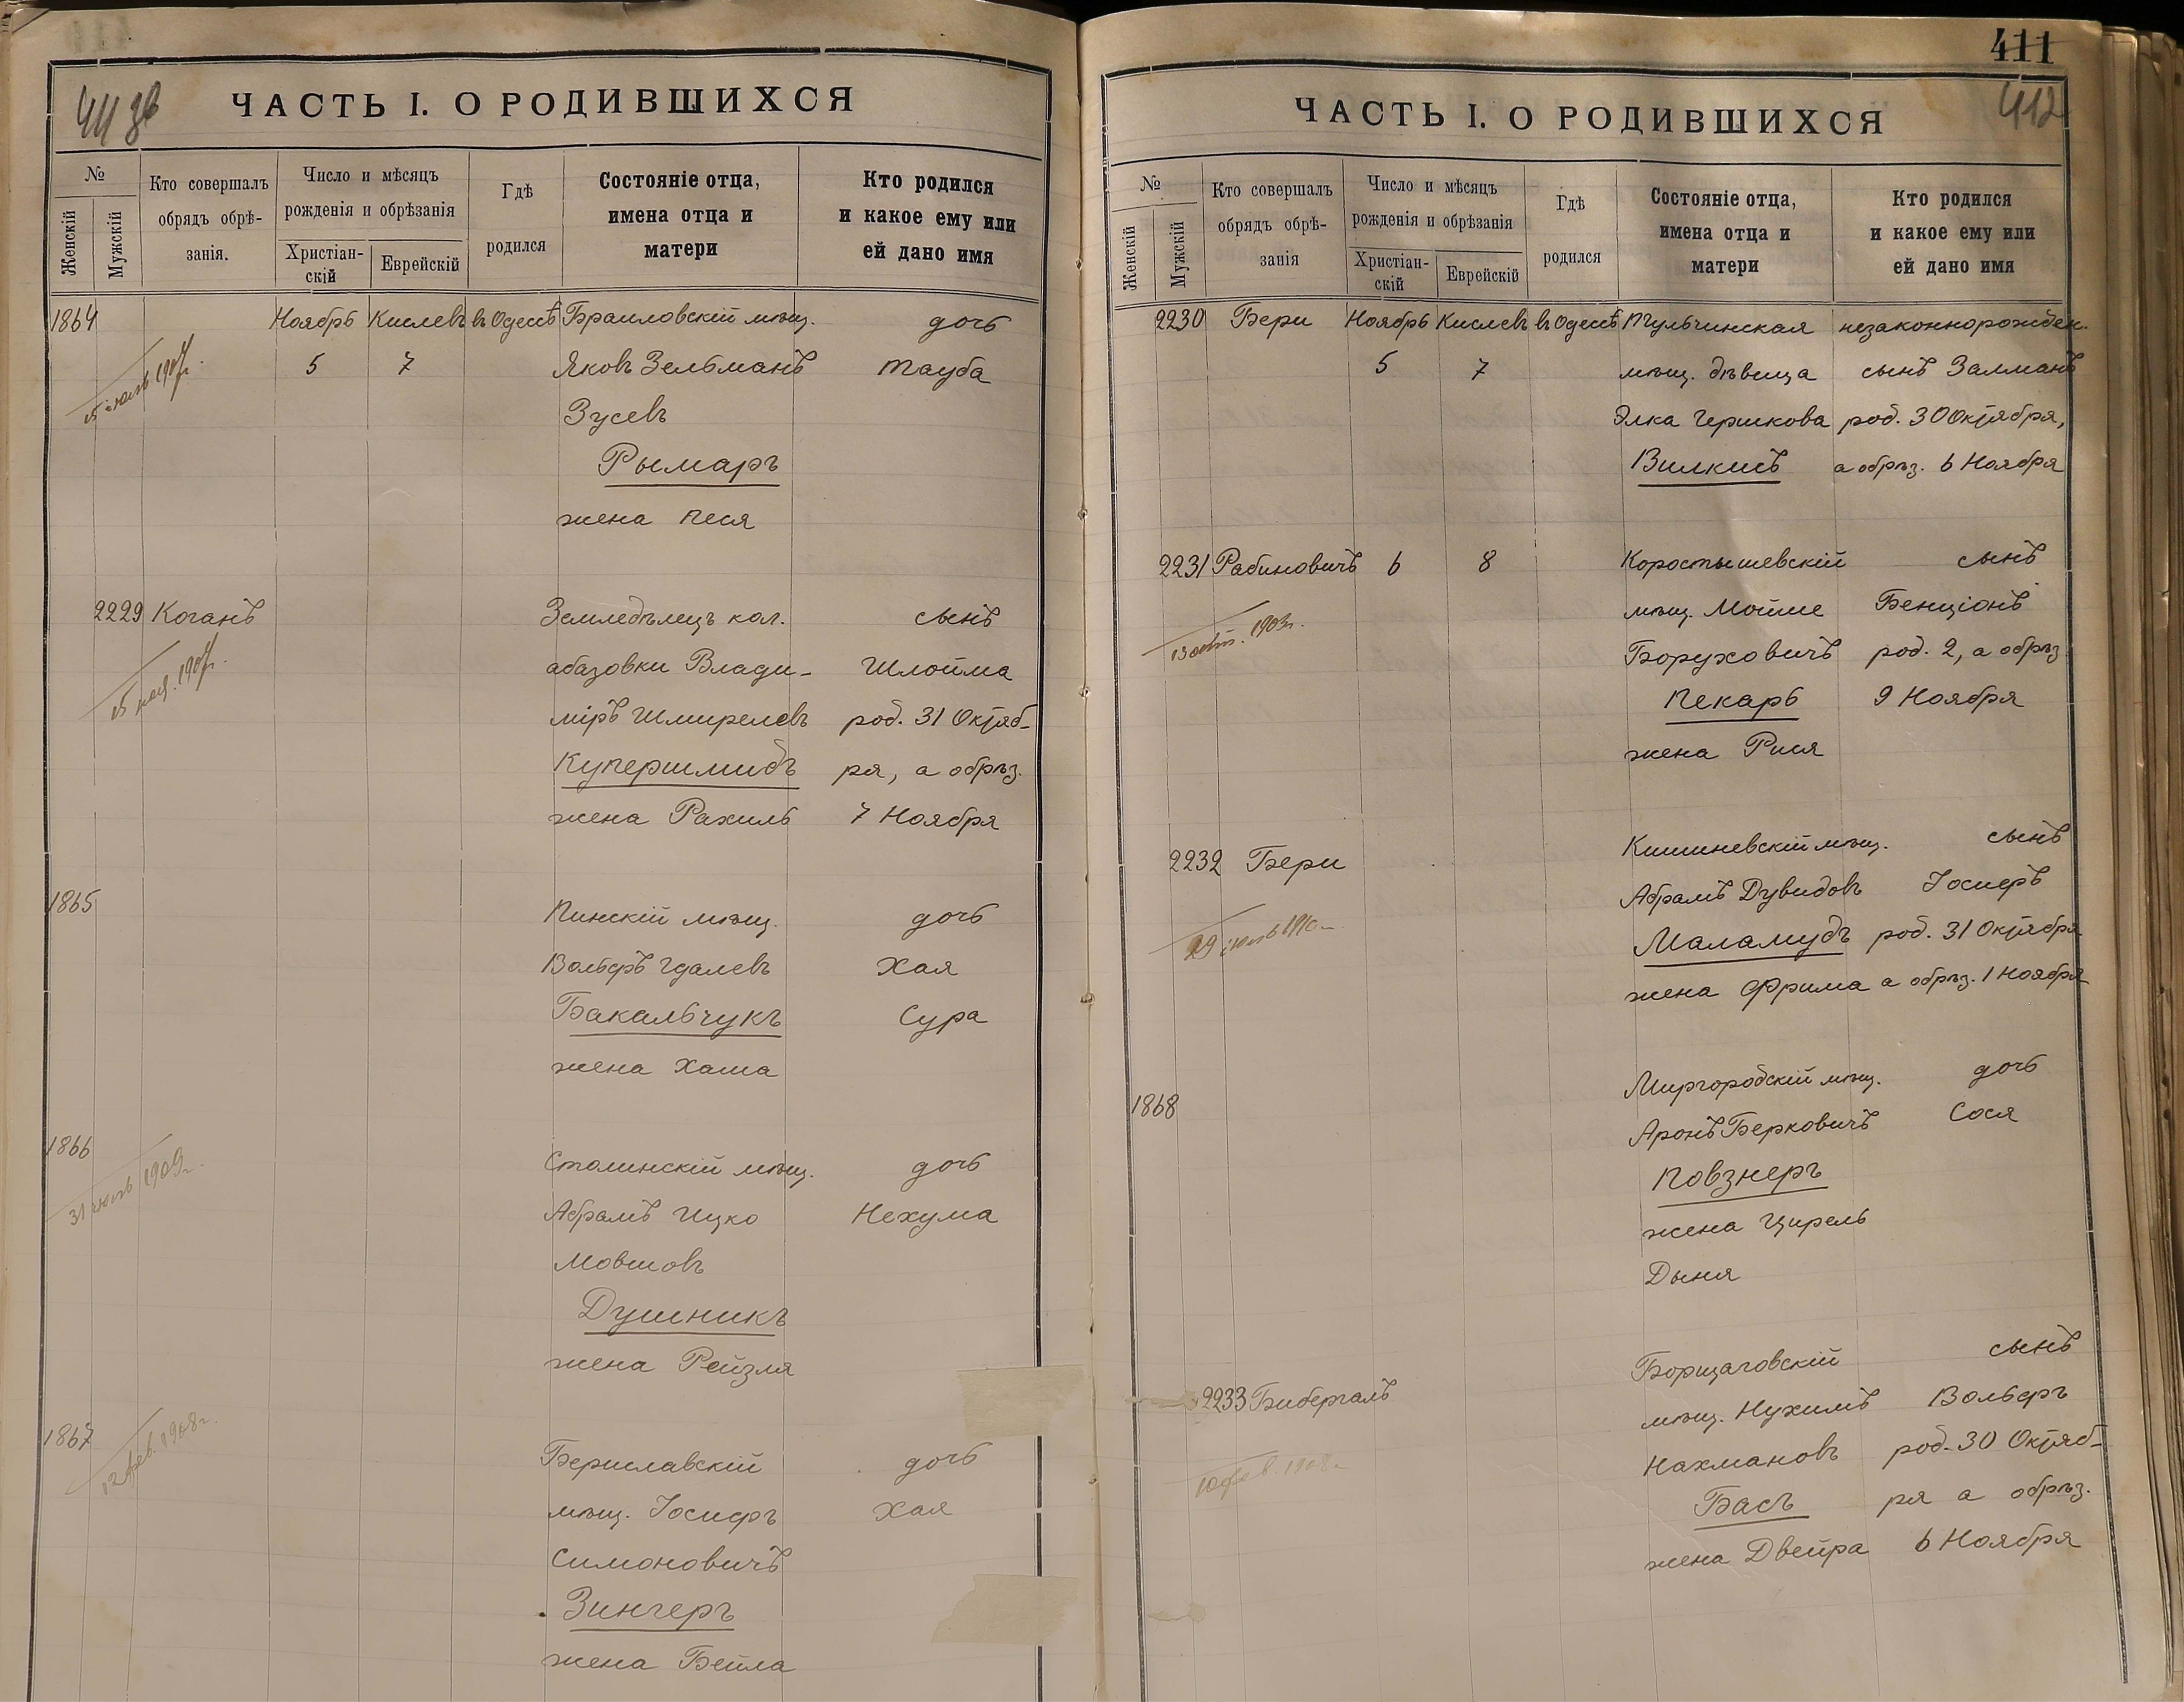 ЧАСТЬ I. О РОДИВШИХСЯ
№
Женскій
Мужскій
Кто совершалъ
обрядъ обрѣ-
занія.
Число и мѣсяцъ
рожденія и обрѣзанія
Христіан-
скій
Еврейскій
Гдѣ
родился
Состояніе отца,
имена отца и
матери
Кто родился
и какое ему или
ей дано имя
1864 Ноябрь Кислевъ въ Одессѣ Браиловскій мѣщ. дочь
5 7 Яковъ Зельманъ Тауба
Зусевъ
Рымаръ
жена Песя
2229 Коганъ Земледѣлецъ кол. сынъ
абазовки Влади- Шлойма
міръ Шмирелевъ род. 31 Октяб-
Купершмидъ ря, а обрѣз.
жена Рахиль 7 Ноября
1865 Пинскій мѣщ. дочь
Вольфъ Гдалевъ Хая
Бакальчукъ Сура
жена Хаша
1866 Столинскій мѣщ. дочь
31 1909г.
Абрамъ Ицко Нехума
Мовшовъ
Душникъ
жена Рейзля
1867 Бериславскій дочь
12 фев. 1908г.
мѣщ. Іосифъ Хая
Симоновичъ
Зингеръ
жена Бейла
411
412
ЧАСТЬ I. О РОДИВШИХСЯ
№
Женскій
Мужскій
Кто совершалъ
обрядъ обрѣ-
занія
Число и мѣсяцъ
рожденія и обрѣзанія
Христіан-
скій
Еврейскій
Гдѣ
родился
Состояніе отца,
имена отца и
матери
Кто родился
и какое ему или
ей дано имя
2230 Бери Ноябрь Кислевъ въ Одессѣ Тульчинская незаконнорожден.
5 7 мѣщ. дѣвица сынъ Залманъ
Элка Гершкова род. 30 Октября,
Вилкисъ а обрѣз. 6 Ноября
2231 Рабиновичъ 6 8 Коростышевскій сынъ
1903г.
мѣщ. Мойше Бенціонъ
Боруховичъ род. 2, а обрѣз.
Пекарь 9 Ноября
жена Рися
2232 Бери Кишиневскій мѣщ. сынъ
1910
Абрамъ Дувидовъ Іосифъ
Маламудъ род. 31 Октября
жена Фрима а обрѣз. 1 Ноября
1868 Миргородскій мѣщ. дочь
Аронъ Берковичъ Сося
Повзнеръ
жена Цирель
Дыня
2233 Бибергалъ Борщаговскій сынъ
10 фев. 1908г.
мѣщ. Нухимъ Вольфъ
Нахмановъ род. 30 Октяб-
Басъ ря а обрѣз.
жена Двейра 6 Ноября